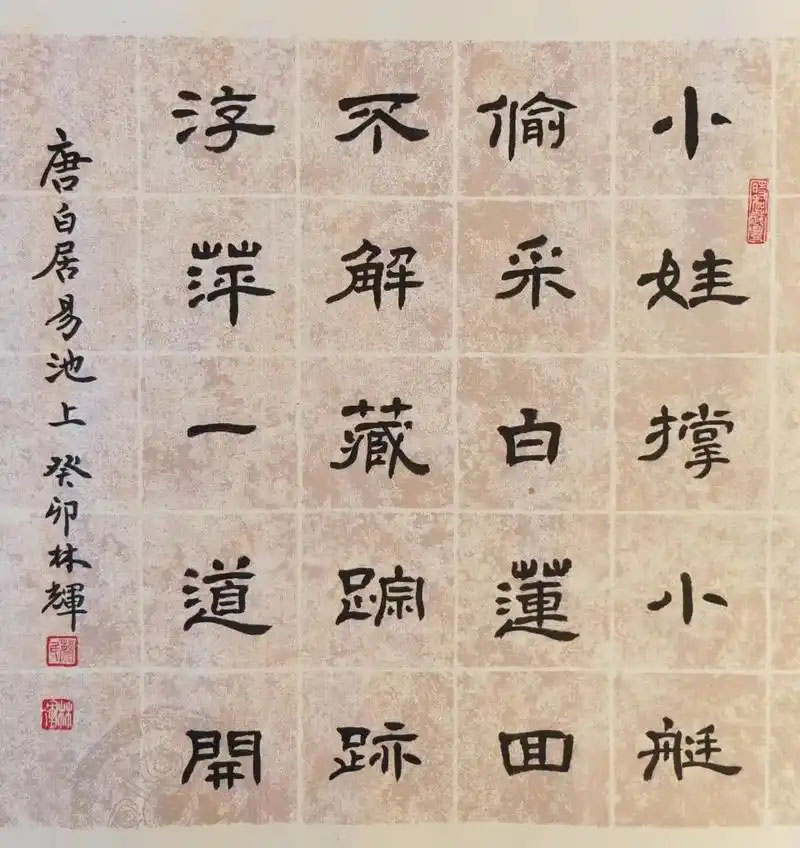 小娃撑小艇
偷采白蓮回
不解藏踪跡
浮萍一道開
唐白居易池上 癸卯林輝